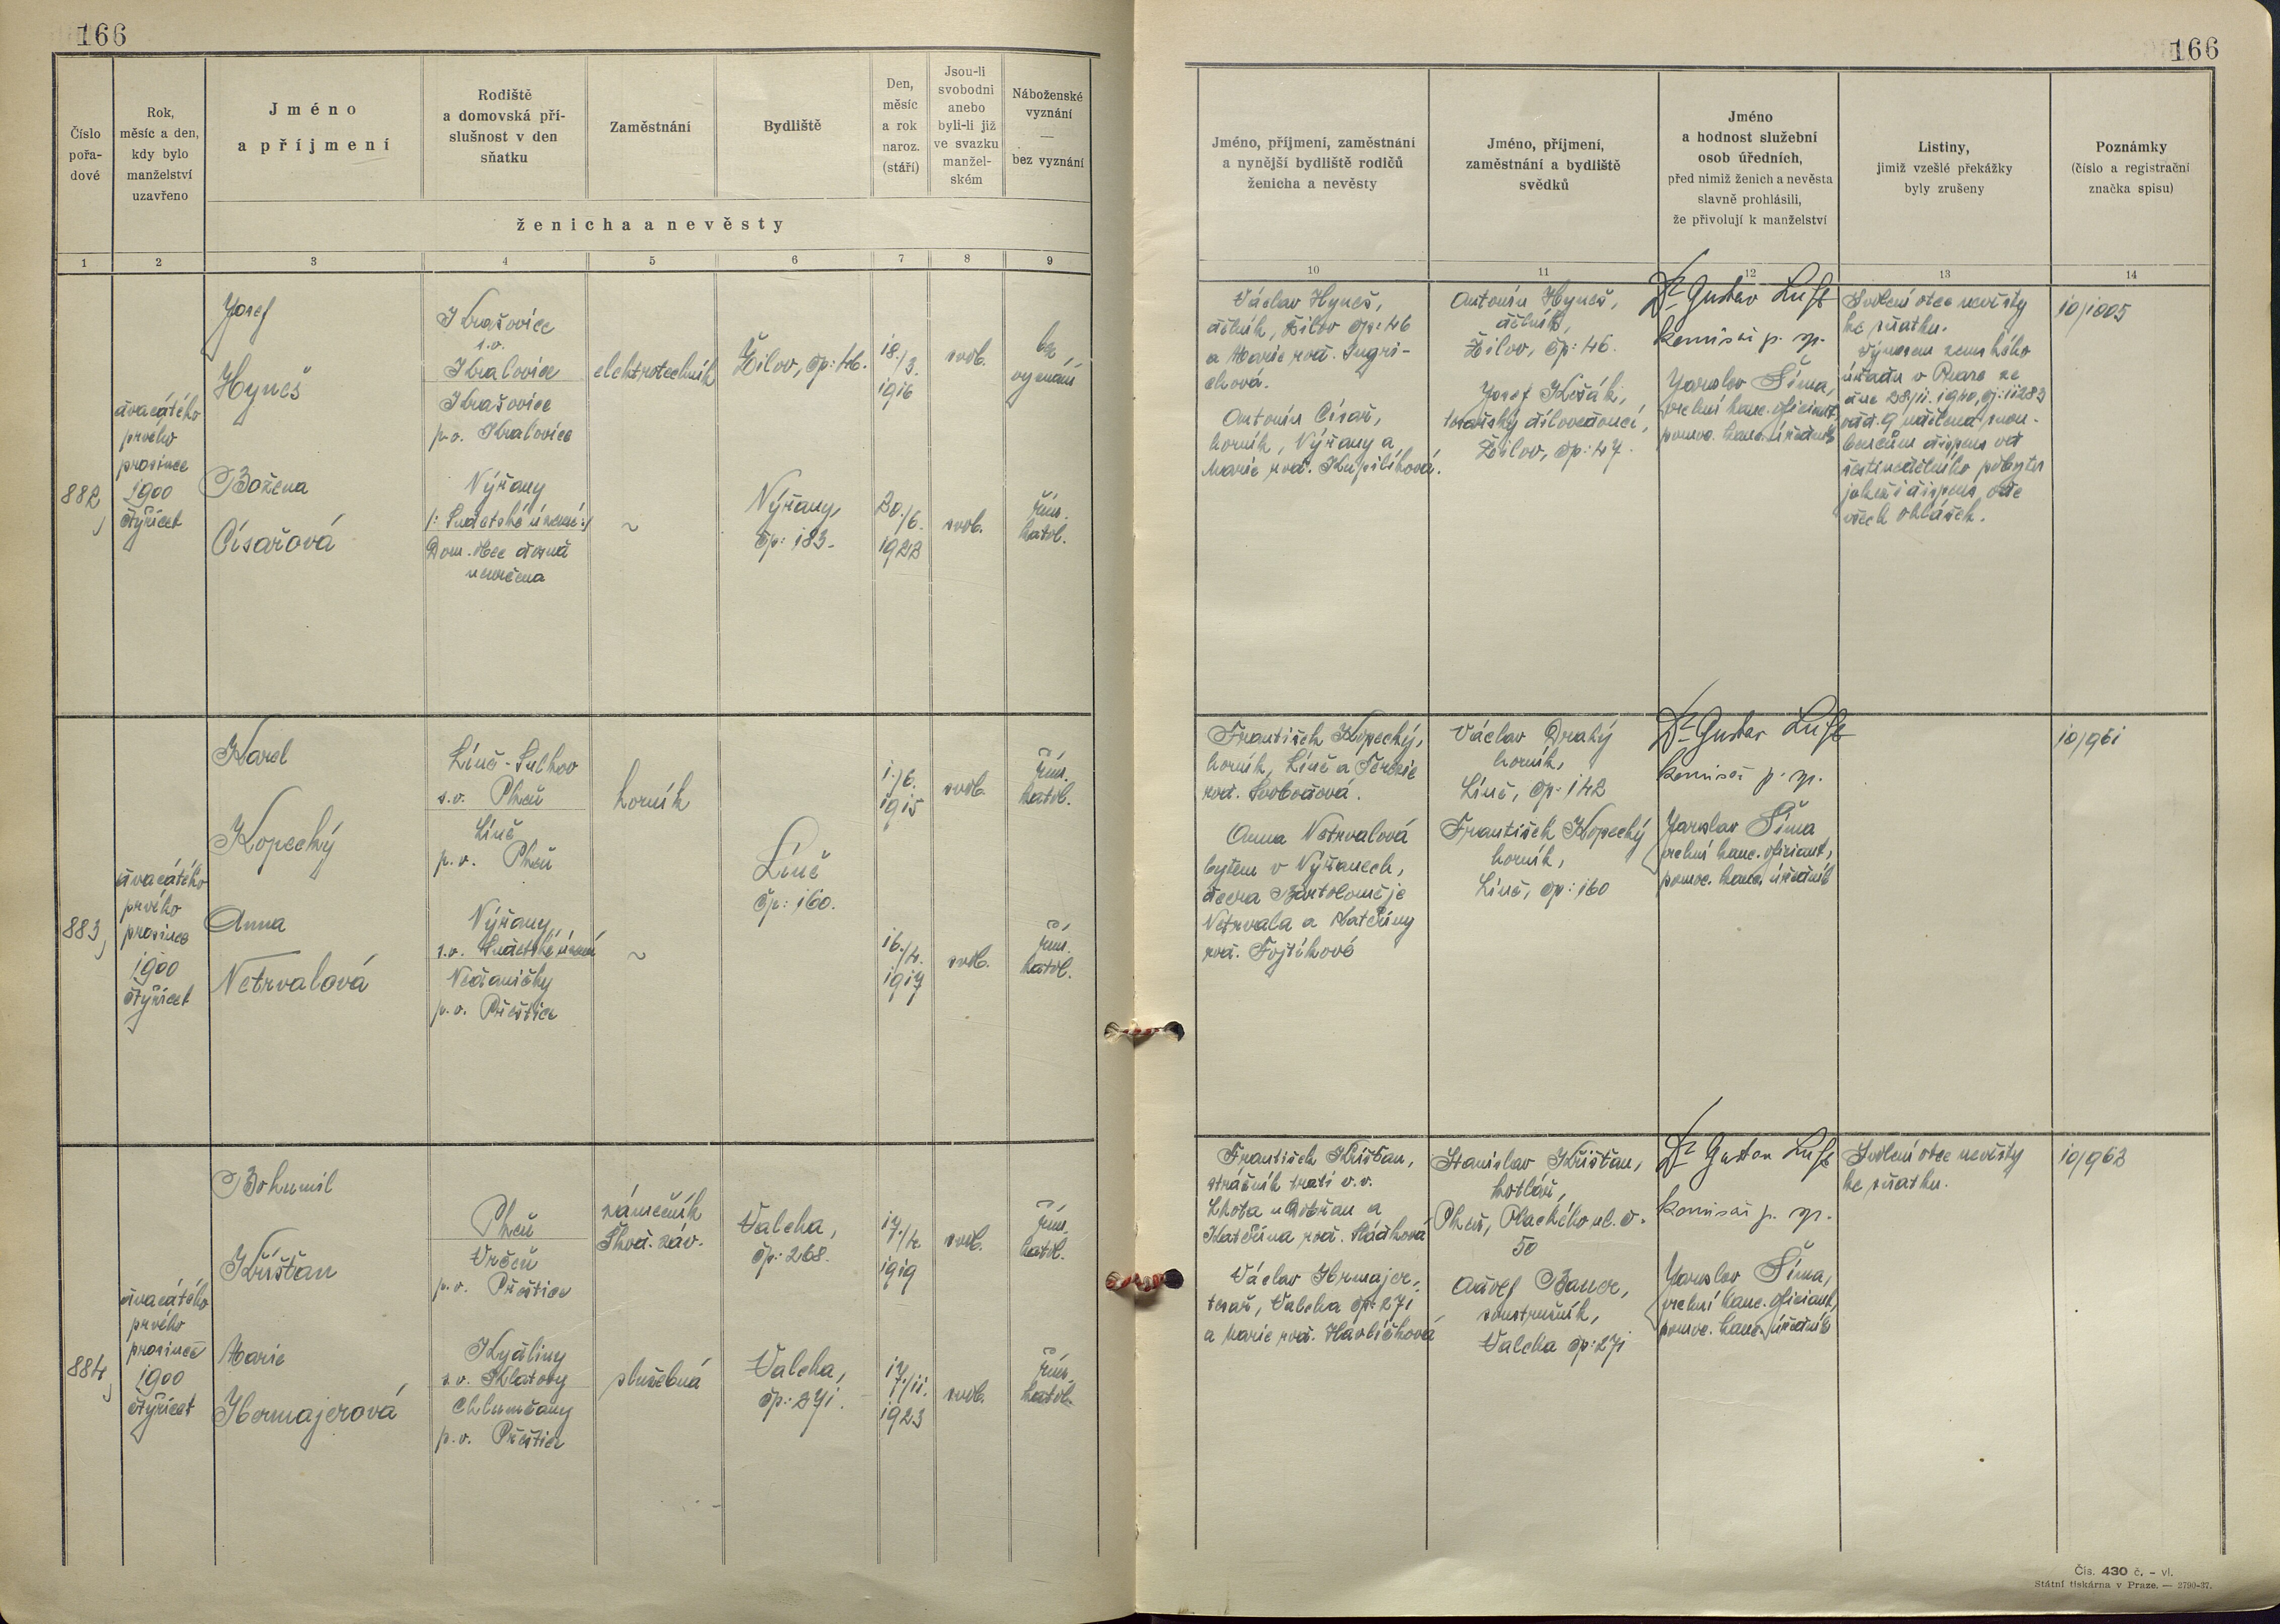 166
166
Číslo pořa-dové
Rok, měsíc a den, kdy bylo manželství uzavřeno
Jméno a příjmení
Rodiště a domovská pří-slušnost v den sňatku
Zaměstnání
Bydliště
Den, měsíc a rok naroz. (stáří)
Jsou-li svobodni anebo byli-li již ve svazku manžel-ském
Náboženské vyznání — bez vyznání
ženicha a nevěsty
1 2 3 4 5 6 7 8 9
Jméno, příjmení, zaměstnání a nynější bydliště rodičů ženicha a nevěsty
Jméno, příjmení, zaměstnání a bydliště svědků
Jméno a hodnost služební osob úředních, před nimiž ženich a nevěsta slavně prohlásili, že přivolují k manželství
Listiny, jimiž vzešlé překážky byly zrušeny
Poznámky (číslo a registrační značka spisu)
10 11 12 13 14
882,
dvacátého
prvého
prosince
1900
čtyřicet
Josef
Hyneš
Krašovice
s.o.
Kralovice
Krašovice
p.o. Kralovice
elektrotechnik
Žilov, čp: 46.
18./3.
1916
svob.
bez
vyznání
Božena
Císařová
Nýřany
/: Sudetské území :/
Dom. obec dosud
neurčena
~
Nýřany,
čp: 183.
20./6.
1922
svob.
řím.
katol.
Václav Hyneš,
dělník, Žilov čp: 46
a Marie roz.
Antonín Císař,
horník, Nýřany a
Marie roz.
Antonín Hyneš,
dělník,
Žilov, čp: 46.
Josef
tovární dílovedoucí,
Žilov, čp: 47.
Dr Gustav Luft
komisař p. sp.
Jaroslav Šíma,
vrchní kanc. oficiant,
pomoc. kanc. úředník
Svolení otce nevěsty
ke sňatku.
Výnosem zemského
úřadu v Praze ze
dne 28/11. 1940, čj: 11283
odd. 9 udělena snou-
bencům dispens od
šestinedělního pobytu
jakož i dispens ode
všech ohlášek.
10/1005
883,
dvacátého
prvého
prosince
1900
čtyřicet
Karel
Kopecký
Líně - Sulkov
s.o. Plzeň
Líně
p.o. Plzeň
horník
Líně
čp: 160.
1./6.
1915
svob.
řím.
katol.
Anna
Netrvalová
Nýřany,
s.o. Sudetské území
Nedaničky
p.o. Přeštice
~
16./4.
1917
svob.
řím.
katol.
František Kopecký,
horník, Líně a Terezie
roz. Svobodová.
Anna Netrvalová
bytem v Nýřanech,
dcera Bartoloměje
Netrvala a Kateřiny
roz. Fojtíkové
Václav Drahý
horník,
Líně, čp: 142
František Kopecký
horník,
Líně, čp: 160
Dr Gustav Luft
komisař p. sp.
Jaroslav Šíma
vrchní kanc. oficiant,
pomoc. kanc. úředník
10/961
884,
dvacátého
prvého
prosince
1900
čtyřicet
Bohumil
Křišťan
Plzeň
Vrčeň
p.o. Přeštice
zámečník
Škod. záv.
Valcha,
čp: 268.
17./4.
1919
svob.
řím.
katol.
Marie
Hermajerová
Kydliny
s.o. Klatovy
Chlumčany
p.o. Přeštice
služebná
Valcha,
čp: 271.
17./11.
1923
svob.
řím.
katol.
František Křišťan,
strážník trati v.v.
Lhota u Dobřan a
Kateřina roz. Hádková
Václav Hermajer,
tesař, Valcha čp: 271
a Marie roz. Havlíčková
Stanislav Křišťan,
kotlář,
Plzeň, Plachého ul. č.
50
Adolf Bauer,
soustružník,
Valcha čp: 271
Dr Gustav Luft
komisař p. sp.
Jaroslav Šíma,
vrchní kanc. oficiant,
pomoc. kanc. úředník
Svolení otce nevěsty
ke sňatku.
10/962
Čís. 430 č. - vl.
Státní tiskárna v Praze. — 2790-37.